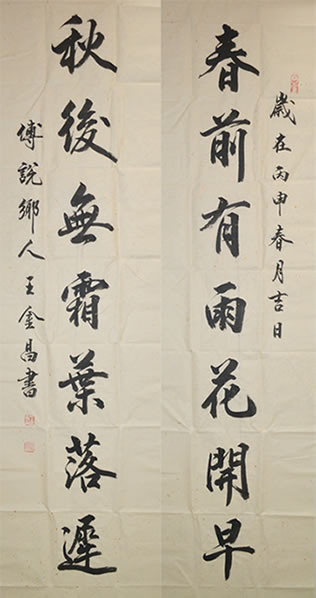 歲在丙申春月吉日
春前有雨花開早
秋後無霜葉落遲
傅說鄉人王金昌書